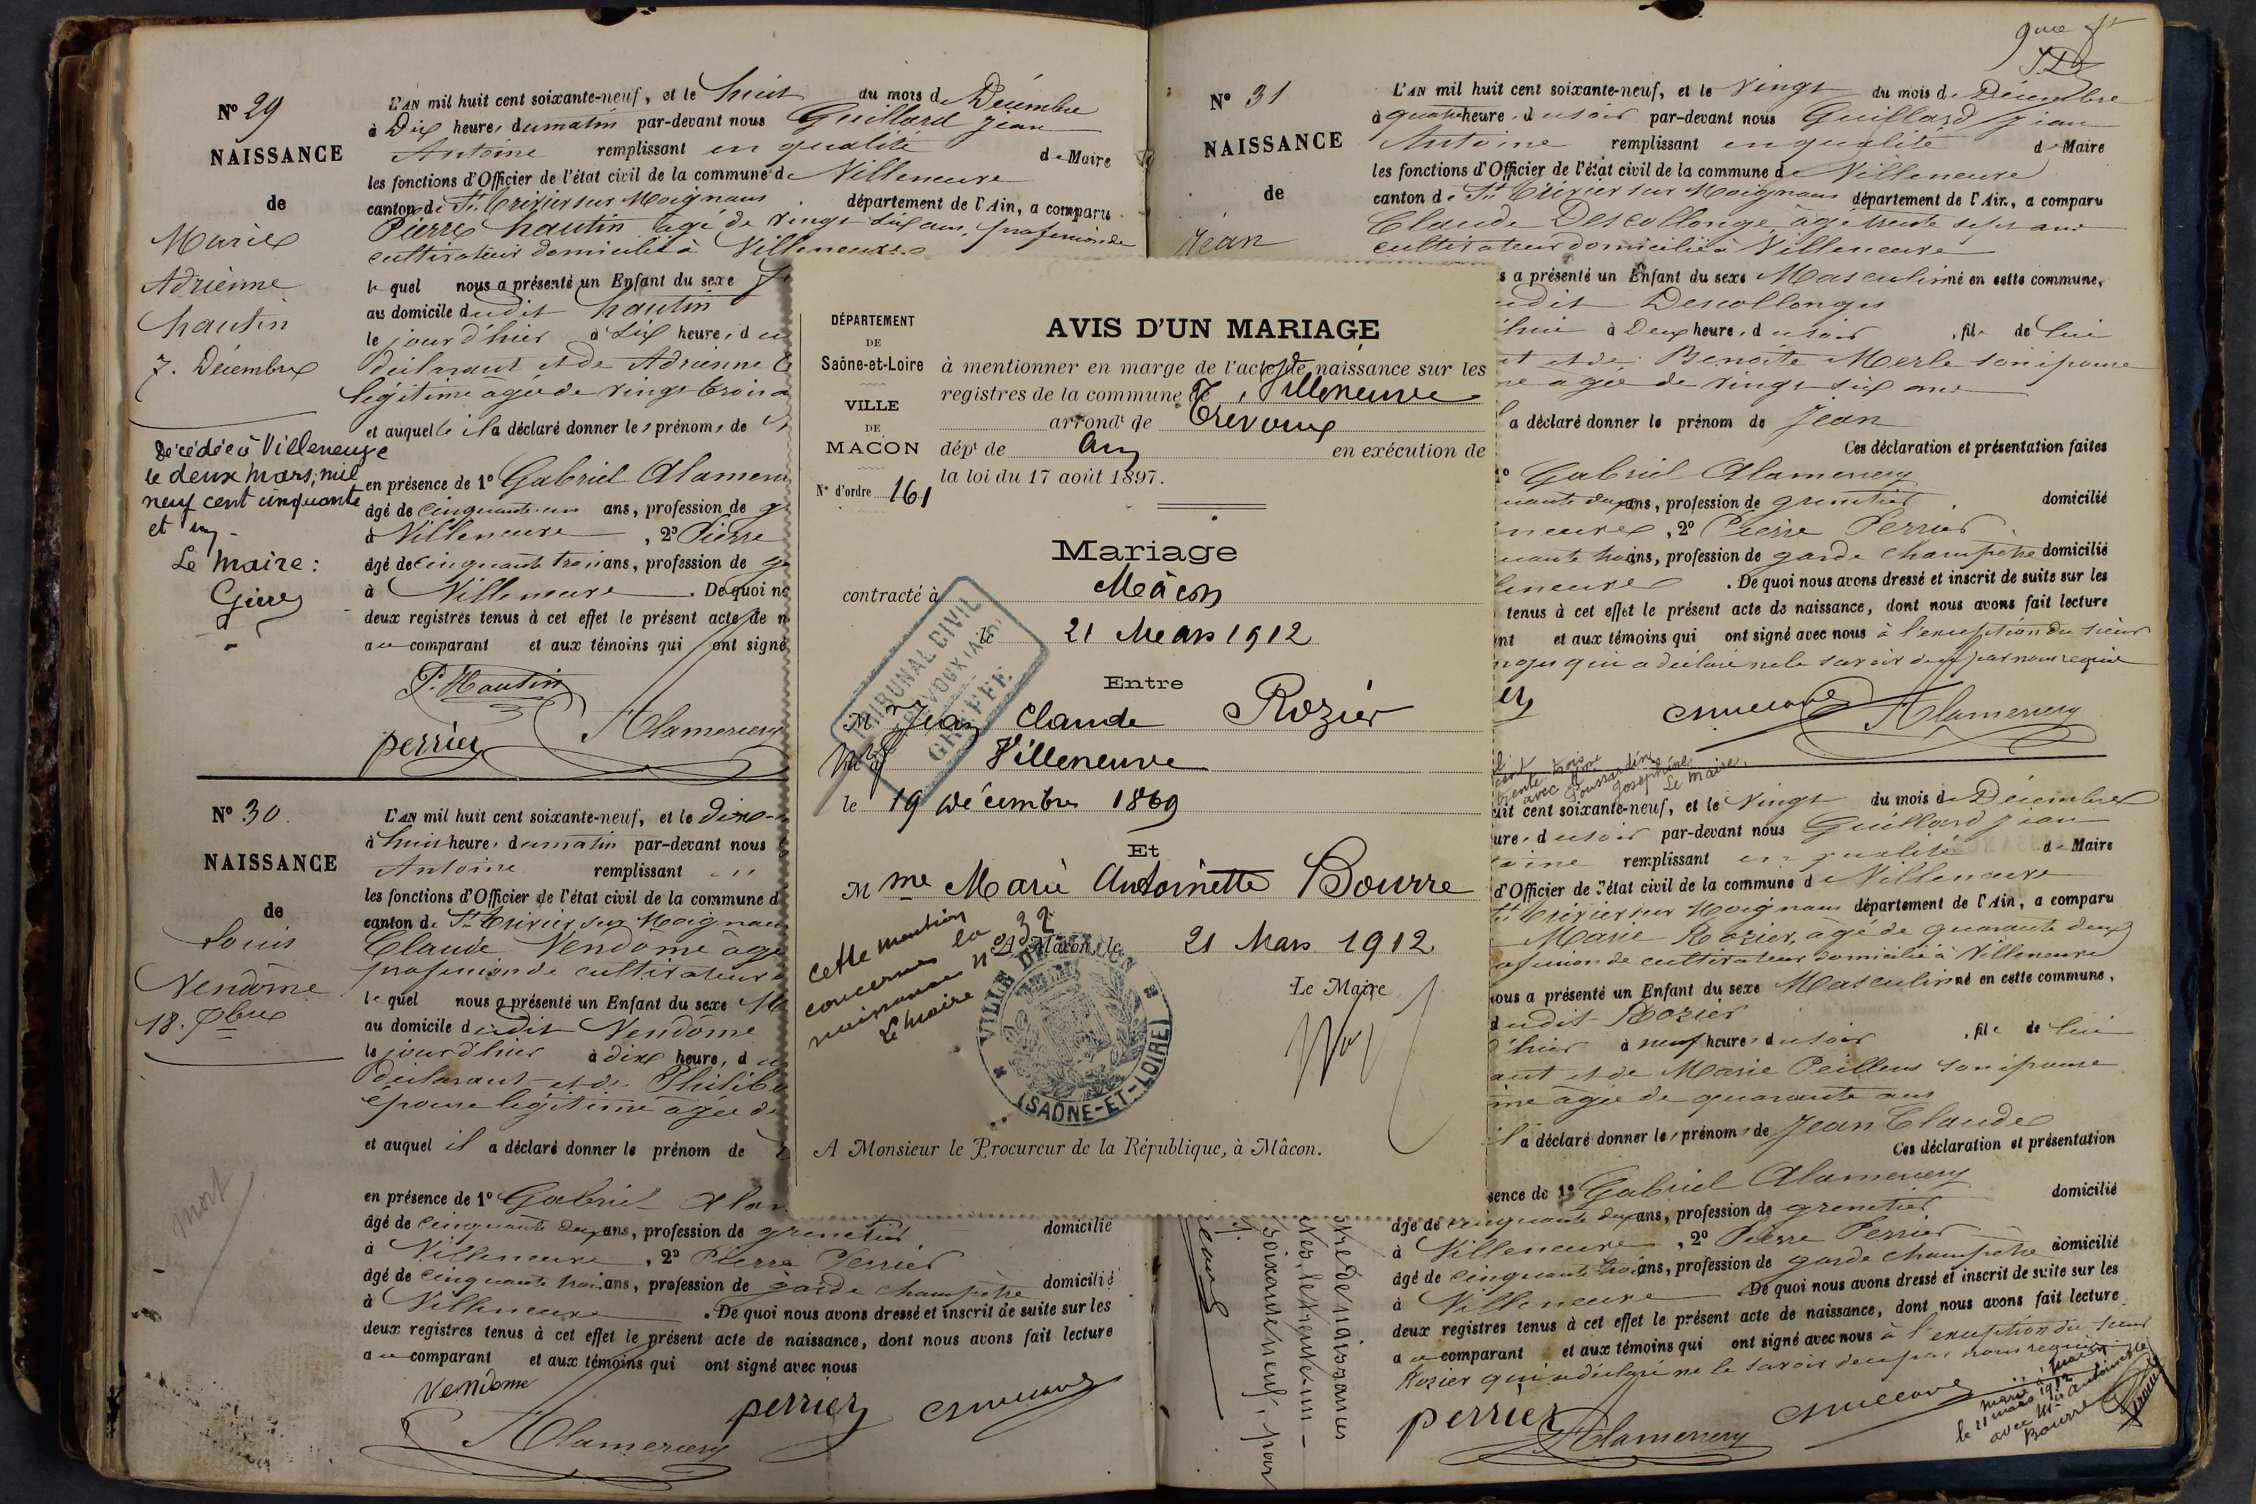 Nº 29
NAISSANCE
de
Marie
Adrienne
hautin
7. Décembre
Décédée à Villeneuve
le deux mars, mil
neuf cent cinquante
et un
Le Maire :
L'AN mil huit cent soixante-neuf, et le huit du mois de Décembre
à Dix heures du matin par-devant nous Guillard Jean
Antoine remplissant en qualité de Maire
les fonctions d'Officier de l'état civil de la commune de Villeneuve
canton de St Trivier sur Moignans département de l'Ain, a comparu
Pierre hautin âgé de vingt six ans, profession de
cultivateur domicilié à Villeneuve
lequel nous a présenté un Enfant du sexe
au domicile dudit hautin
le jour d'hier à six heures, d
déclarant et de Adrienne
légitime âgée de vingt trois a
et auquel il a déclaré donner les prénoms de
en présence de 1º Gabriel Alamer
âgé de cinquante un ans, profession de
à Villeneuve, 2º Pierre
âgé de cinquante trois ans, profession de
à Villeneuve. De quoi n
deux registres tenus à cet effet le présent acte de n
au comparant et aux témoins qui ont signé
P. Hautin
perrier
Alamercery
Nº 30.
NAISSANCE
de
Louis
Vendôme
18. Xbre
mort
L'AN mil huit cent soixante-neuf, et le dix-
à huit heures du matin par-devant nous
Antoine remplissant
les fonctions d'Officier de l'état civil de la commune d
canton de St Trivier sur Moignans
Claude Vendôme âgé
profession de cultivateur
lequel nous a présenté un Enfant du sexe
au domicile dudit Vendôme
le jour d'hier à dix heures, d
déclarant et de Philib
épouse légitime âgée de
et auquel il a déclaré donner le prénom de
en présence de 1º Gabriel Alam
âgé de cinquante deux ans, profession de grenetier domicilié
à Villeneuve, 2º Pierre Perrier
âgé de cinquante trois ans, profession de garde champêtre domicilié
à Villeneuve. De quoi nous avons dressé et inscrit de suite sur les
deux registres tenus à cet effet le présent acte de naissance, dont nous avons fait lecture
au comparant et aux témoins qui ont signé avec nous
Vendome
perrier
Alamercery
DÉPARTEMENT
DE
Saône-et-Loire
VILLE
DE
MACON
Nº d'ordre 161
AVIS D'UN MARIAGE
à mentionner en marge de l'acte de naissance sur les
registres de la commune de Villeneuve
arrondt de Trevoux
dépt de Ain en exécution de
la loi du 17 août 1897.
Mariage
contracté à Mâcon
le 21 Mars 1912
Entre
M Jean Claude Rozier
Né à Villeneuve
le 19 décembre 1869
Et
M me Marie Antoinette Bourre
A Mâcon, le 21 Mars 1912
Le Maire
cette mention
concerne la
naissance nº 32
Le Maire
TRIBUNAL CIVIL
TRÉVOUX (AIN)
GREFFE
VILLE DE MACON
(SAÔNE-ET-LOIRE)
A Monsieur le Procureur de la République, à Mâcon.
Nº 31
NAISSANCE
de
Jean
L'AN mil huit cent soixante-neuf, et le vingt du mois de Décembre
à quatre heures du soir par-devant nous Guillard Jean
Antoine remplissant en qualité de Maire
les fonctions d'Officier de l'état civil de la commune de Villeneuve
canton de St Trivier sur Moignans département de l'Ain, a comparu
Claude Descollonge âgé trente sept ans
cultivateur domicilié à Villeneuve
s a présenté un Enfant du sexe Masculin né en cette commune,
udit Descollonges
'hier à Deux heures, du soir, fils de lui
nt et de Benoite Merle son épouse
me âgée de vingt six ans
l a déclaré donner le prénom de Jean
Ces déclaration et présentation faites
1º Gabriel Alamercery
uante deux ans, profession de grenetier domicilié
neuve, 2º Pierre Perrier
uante trois ans, profession de garde champêtre domicilié
leneuve. De quoi nous avons dressé et inscrit de suite sur les
tenus à cet effet le présent acte de naissance, dont nous avons fait lecture
nt et aux témoins qui ont signé avec nous à l'exception du sieur
nges qui a déclaré ne le savoir de ce par nous requis
Alamercery
trente trois
avec
Joséphine
Le Maire,
uit cent soixante-neuf, et le vingt du mois de Décembre
ure, du soir par-devant nous Guillard Jean
oine remplissant en qualité de Maire
d'Officier de l'état civil de la commune de Villeneuve
St Trivier sur Moignans département de l'Ain, a comparu
Marie Rozier, âgé de quarante deux
ofession de cultivateur domicilié à Villeneuve
nous a présenté un Enfant du sexe Masculin né en cette commune,
dudit Rozier
d'hier à neuf heures du soir, fils de lui
ant et de Marie Peilleux son épouse
me âgée de quarante ans
il a déclaré donner les prénoms de Jean Claude
Ces déclaration et présentation
sence de 1º Gabriel Alamercery
âgé de cinquante deux ans, profession de grenetier domicilié
à Villeneuve, 2º Pierre Perrier
âgé de cinquante trois ans, profession de garde champêtre domicilié
à Villeneuve. De quoi nous avons dressé et inscrit de suite sur les
deux registres tenus à cet effet le présent acte de naissance, dont nous avons fait lecture
au comparant et aux témoins qui ont signé avec nous à l'exception du sieur
Rozier qui a déclaré ne le savoir de ce par nous requis
perrier
Alamercery
marié à Macon
le 21 mars 1912
avec Mie Antoinette
Bourre
de naissances
trente-un
soixante neuf, par